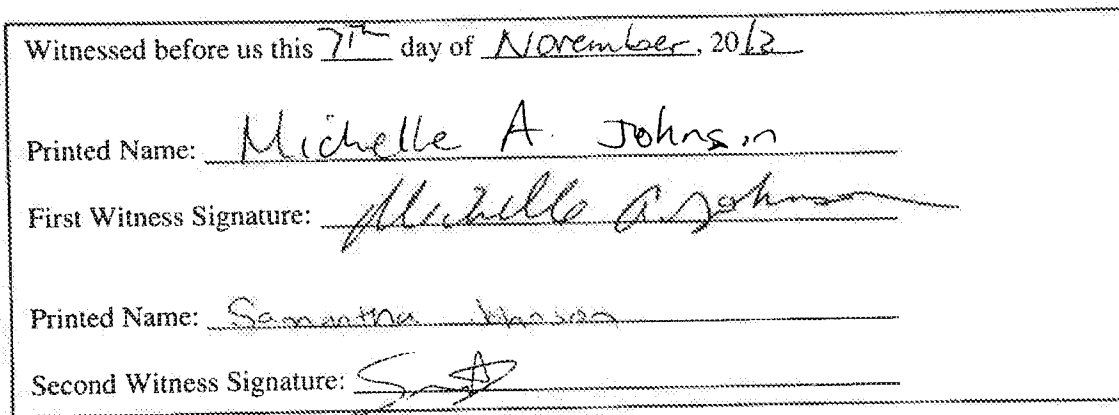 Witnessed before us this 7th day of November, 2012
Printed Name: Michelle A. Johnson
First Witness Signature: Michelle A. Johnson
Printed Name: Samantha
Second Witness Signature: